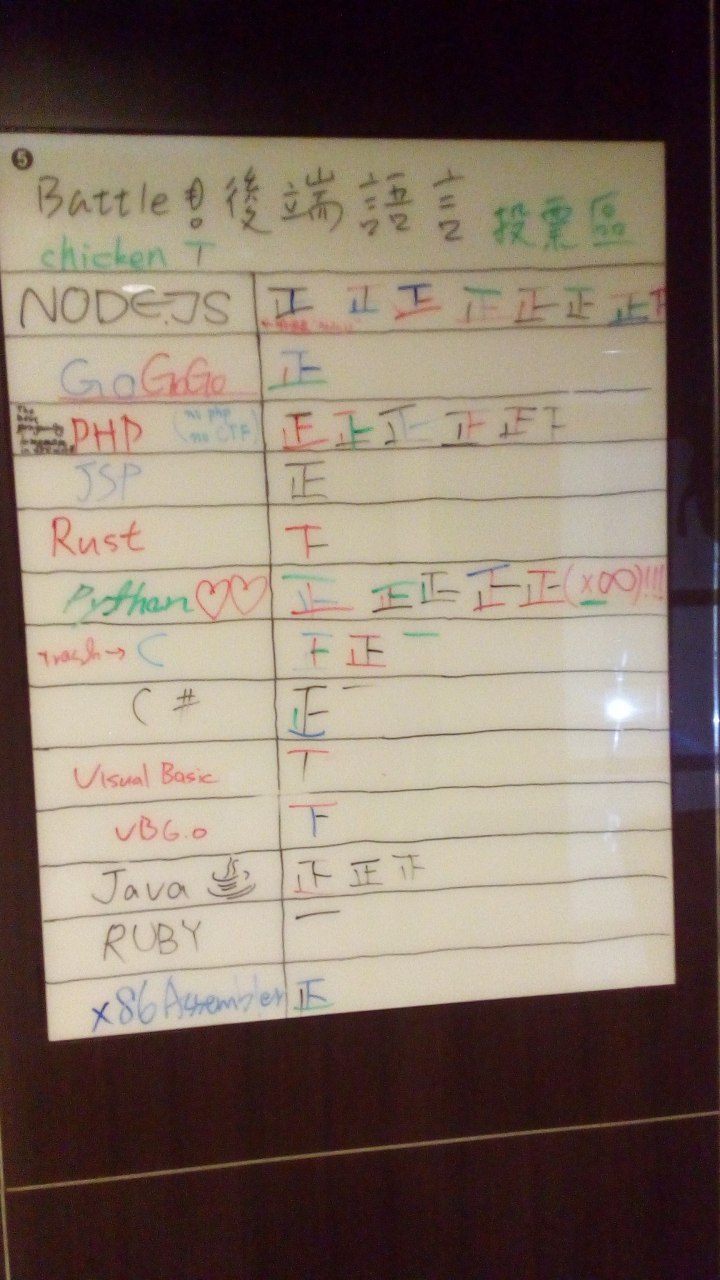 5
Battle! 後端語言 投票區
chicken T
NODE.JS 正 正 正 正 正 正 正 下
GoGoGo 正
The best
PHP (no php no CTF) 正 正 正 正 正 下
JSP 正
Rust 下
Python♡♡ 正 正 正 正 正(x∞)!!!
trash→ C 下 正 一
C# 正 一
Visual Basic 丅
VB6.0 下
Java JS 正 正 正
RUBY 一
x86 Assembler 正